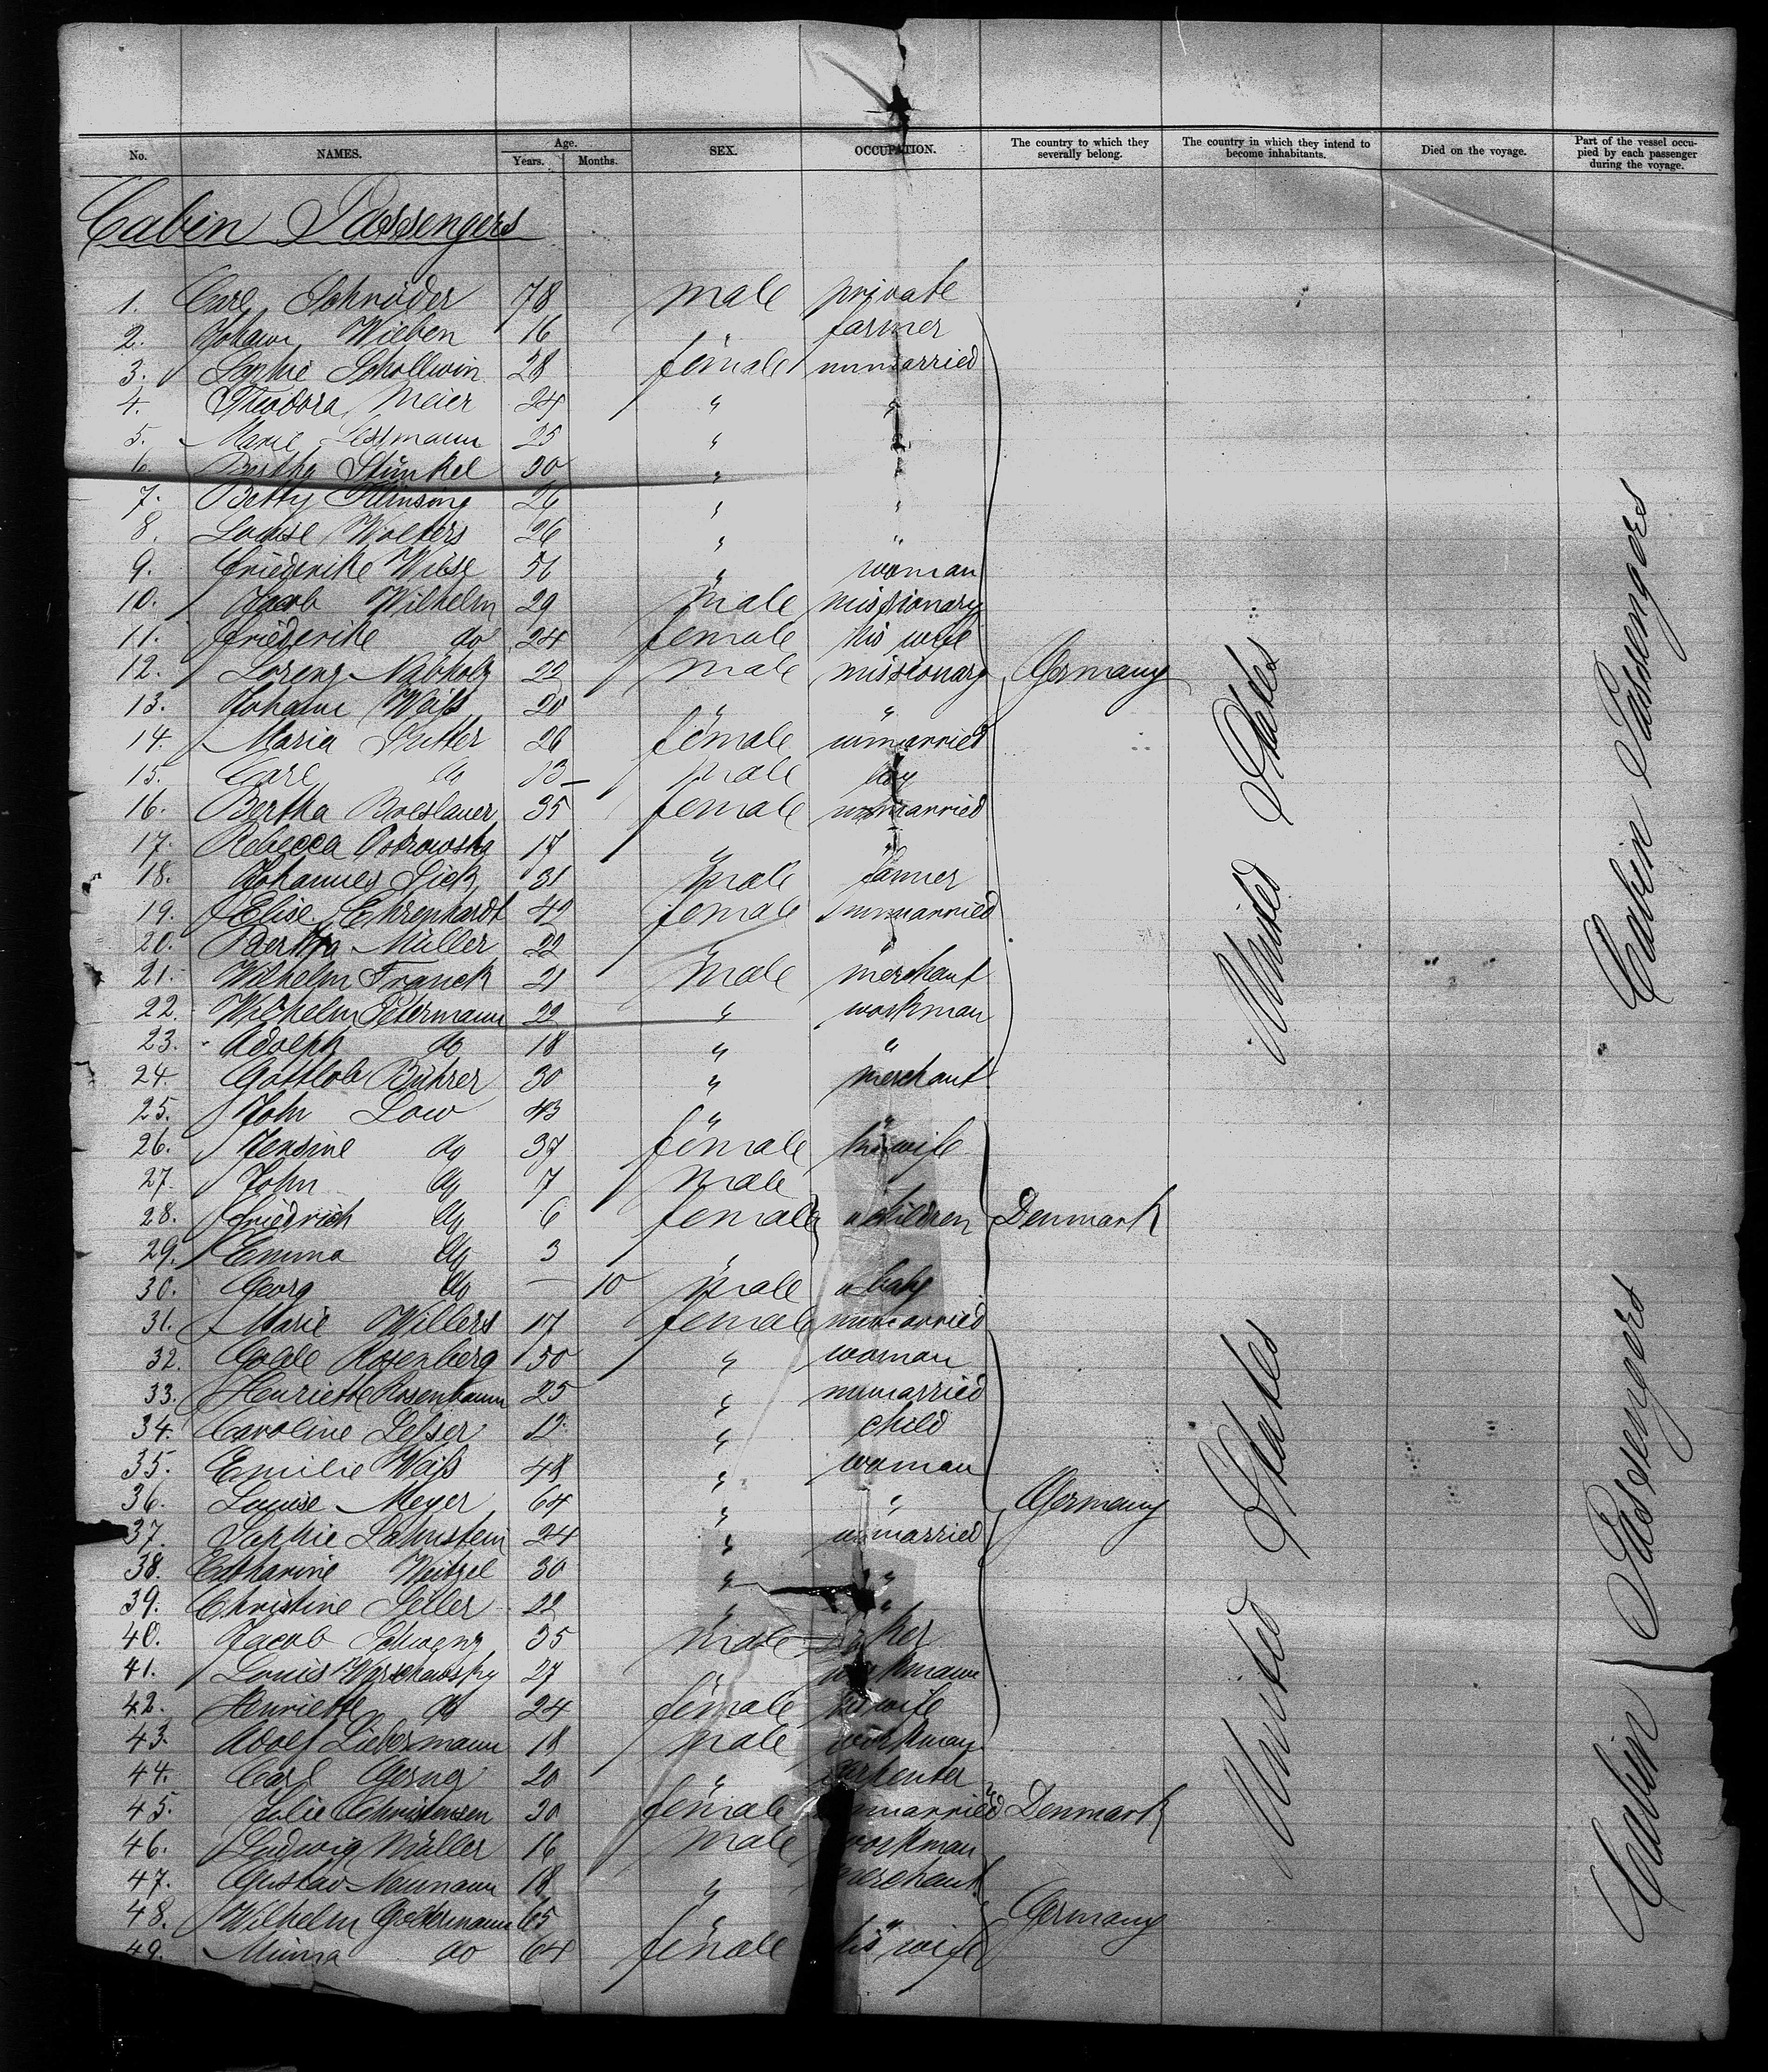 No. NAMES. Age. Years. Months. SEX. OCCUPATION. The country to which they severally belong. The country in which they intend to become inhabitants. Died on the voyage. Part of the vessel occupied by each passenger during the voyage.
Cabin Passengers
1. Carl Schröder 78 male private
2. Johann Wieben 16 " farmer
3. Sophie Schollwin 28 female unmarried
4. Theodora Meier 24 " "
5. Marie Lessmann 25 " "
6. Bertha Stünkel 20 " "
7. Betty 26 " "
8. Louise Wolters 26 " "
9. Friederike Wiese 56 " woman
10. Jacob Wilhelm 29 male missionary
11. Friederike do 24 female his wife
12. Lorenz Nabholz 22 male missionary Germany
13. Johann Weiß 20 " "
14. Maria Sutter 26 female unmarried
15. Carl do 13 male boy
16. Bertha Breslauer 35 female unmarried
17. Rebecca Ostrowsky 17 " "
18. Johannes Sick 31 male farmer
19. Elise Ehrenhardt 42 female unmarried
20. Bertha Müller 22 " "
21. Wilhelm Franck 21 male merchant
22. Wilhelm Petermann 22 " workman
23. Adolph do 18 " "
24. Gottlob Bührer 30 " merchant
25. John Low 43 " "
26. Jensine do 37 female his wife
27. John do 7 male
28. Friedrich do 6 female children Denmark
29. Emma do 3 "
30. Georg do — 10 male a baby
31. Marie Willers 17 female unmarried
32. Golde Rosenberg 50 " woman
33. Henriette Rosenbaum 25 " unmarried
34. Caroline Lesser 12 " child
35. Emilie Weiß 48 " woman
36. Louise Meyer 64 " " Germany
37. Sophie Lahnstein 24 " unmarried
38. Catharine Weitzel 30 " "
39. Christine Seller 22 " "
40. Jacob Schwenz 35 male
41. Louis Warschawsky 27 " workmann
42. Henriette do 24 female his wife
43. Adolf Liebermann 18 male workman
44. Carl 20 " carpenter
45. Julie Christensen 20 female unmarried Denmark
46. Ludwig Müller 16 male workman
47. Gustav Neumann 18 " merchant
48. Wilhelm Gockermann 65 " " Germany
49. Minna do 64 female his wife
United States
United States
Cabin Passengers
Cabin Passengers